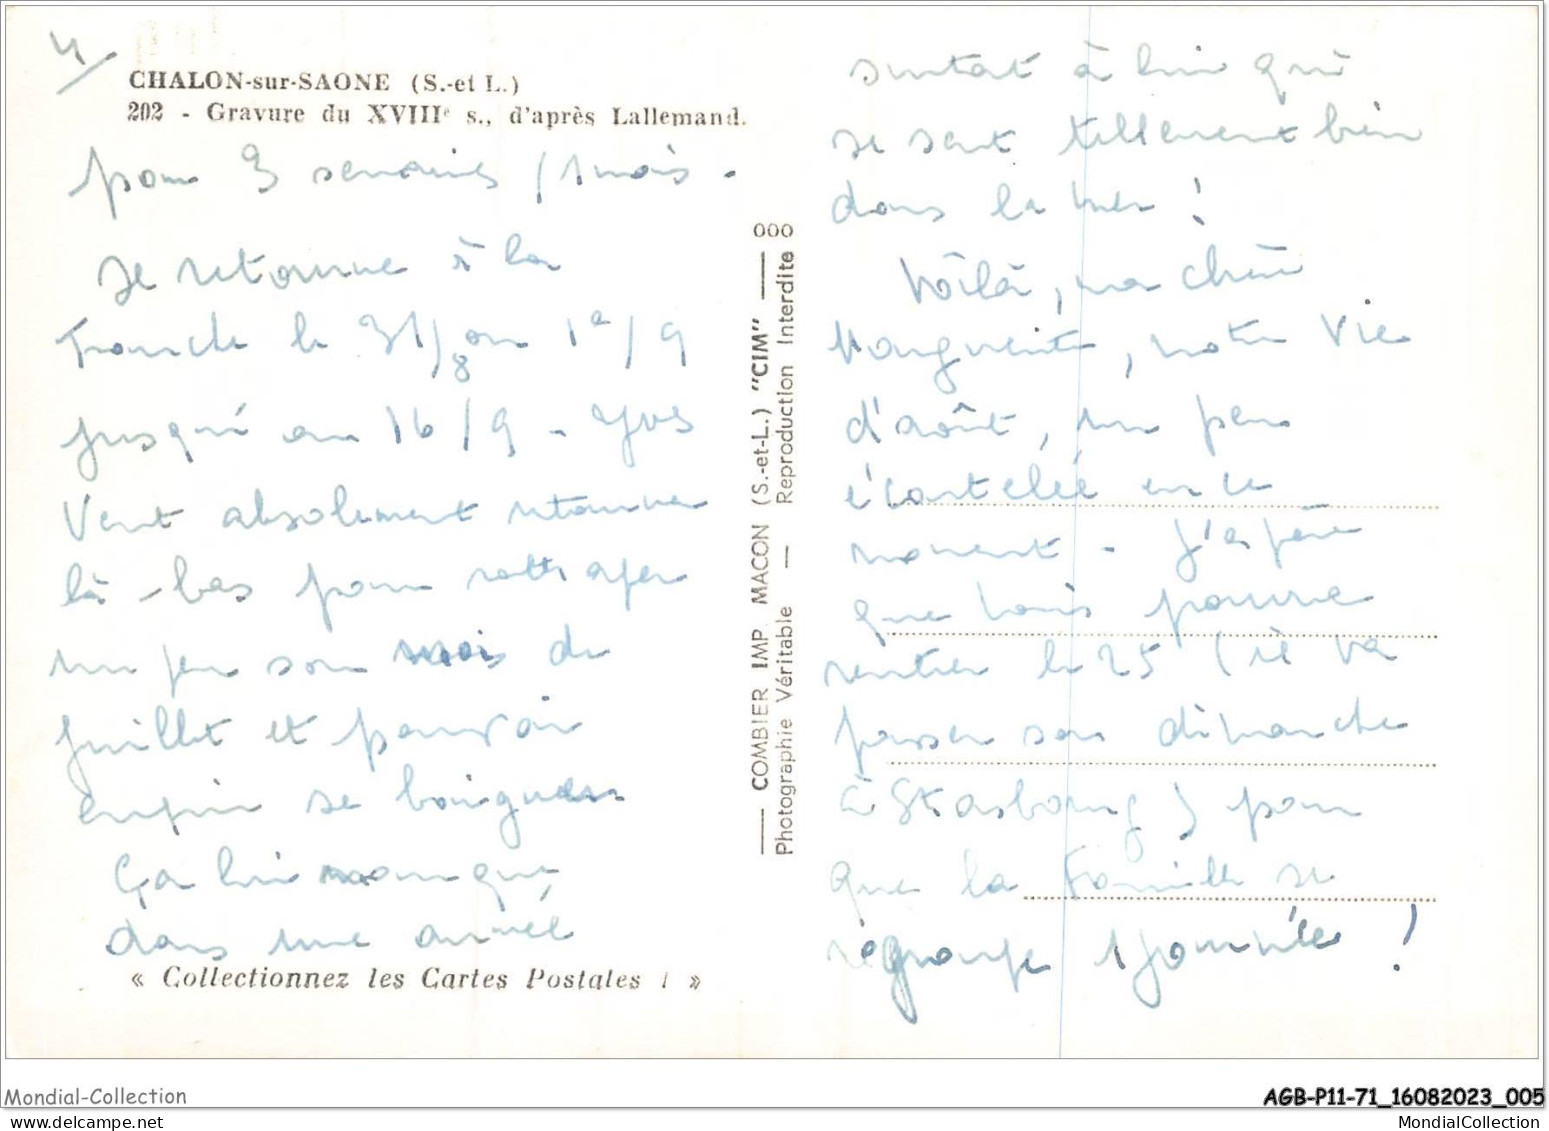 4/
CHALON-sur-SAONE (S.-et L.)
202 - Gravure du XVIIIe s., d'après Lallemand.
pour 3 semaines / 1 mois.
Je retourne à la
Tranche le 31/8 ou 1er/9
jusqu'au 16/9 - Yves
veut absolument retourner
là-bas pour rattraper
un peu son mois de
juillet et pouvoir
enfin se baigner
Ça lui manque
dans une année
« Collectionnez les Cartes Postales ! »
000
COMBIER IMP. MACON (S.-et-L.) "CIM"
Photographie Véritable — Reproduction Interdite
surtout à lui qui
se sent tellement bien
dans la mer !
Voilà, ma chère
Marguerite, notre vie
d'août, un peu
écartelée en ce
moment - J'espère
que Loïs pourra
rentrer le 25 (il va
passer son dimanche
à Strasbourg) pour
que la famille se
regroupe 1 journée !
Mondial-Collection
AGB-P11-71_16082023_005
MondialCollection